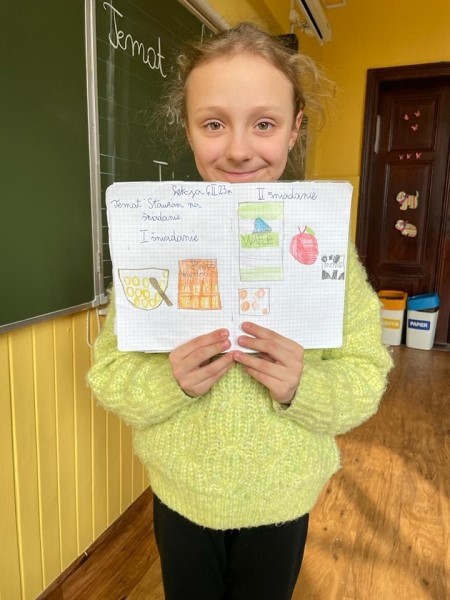 Temat
Lekcja 6.II.23r.
Temat: Stawiam na
śniadanie.
I śniadanie
II śniadanie
WAFLE
PAPIER